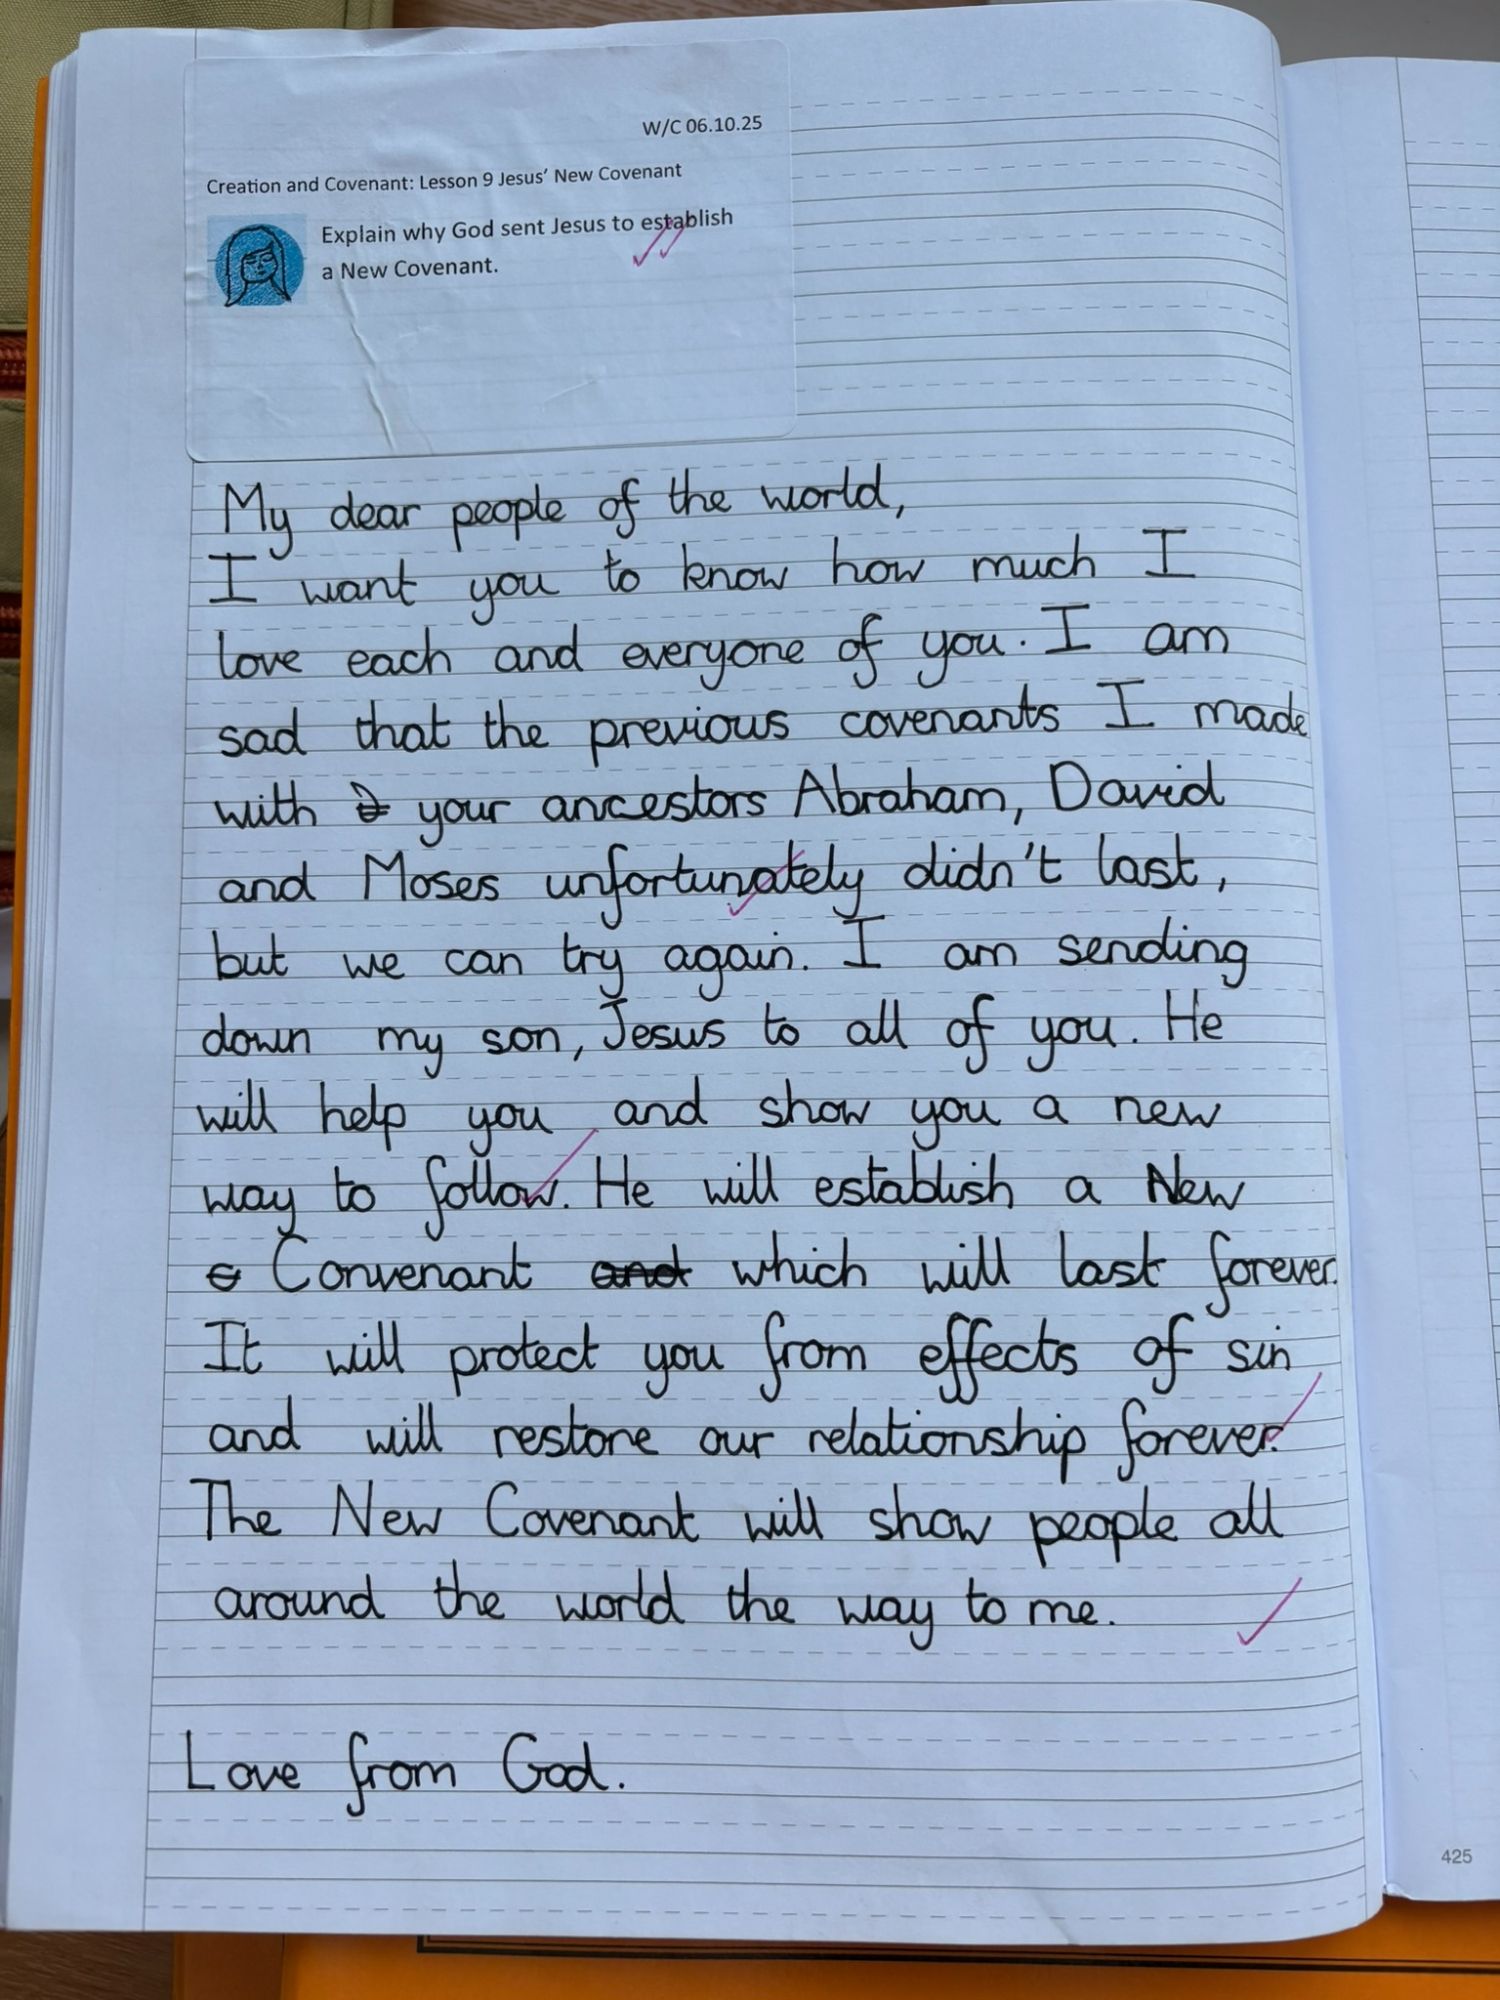 W/C 06.10.25
Creation and Covenant: Lesson 9 Jesus' New Covenant
Explain why God sent Jesus to establish
a New Covenant.
My dear people of the world,
I want you to know how much I
love each and everyone of you. I am
sad that the previous covenants I made
with your ancestors Abraham, David
and Moses unfortunately didn't last,
but we can try again. I am sending
down my son, Jesus to all of you. He
will help you and show you a new
way to follow. He will establish a New
c Convenant and which will last forever.
It will protect you from effects of sin
and will restore our relationship forever.
The New Covenant will show people all
around the world the way to me.
Love from God.
425